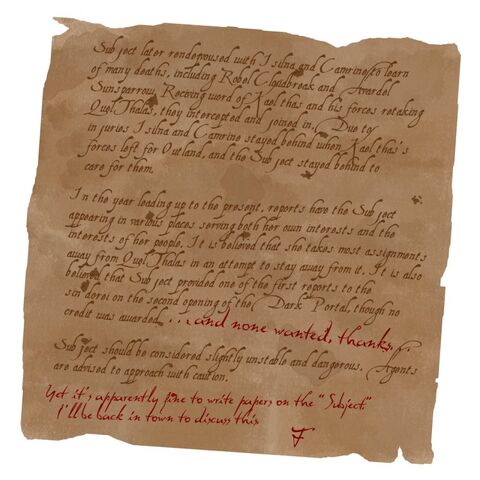 Subject later rendezvoused with Isilna and Camrine to learn
of many deaths, including Robel Cloudbreak and Avardel
Sunsparrow. Receiving word of Kael'thas and his forces retaking
Quel'Thalas, they intercepted and joined in. Due to
injuries Isilna and Camrine stayed behind when Kael'thas's
forces left for Outland, and the Subject stayed behind to
care for them.
In the year leading up to the present, reports have the Subject
appearing in various places serving both her own interests and the
interests of her people. It is believed that she takes most assignments
away from Quel'Thalas in an attempt to stay away from it. It is also
believed that Subject provided one of the first reports to the
sin'dorei on the second opening of the Dark Portal, though no
credit was awarded. ...and none wanted, thanks...
Subject should be considered slightly unstable and dangerous. Agents
are advised to approach with caution.
Yet it's apparently fine to write papers on the "Subject."
I'll be back in town to discuss this
F